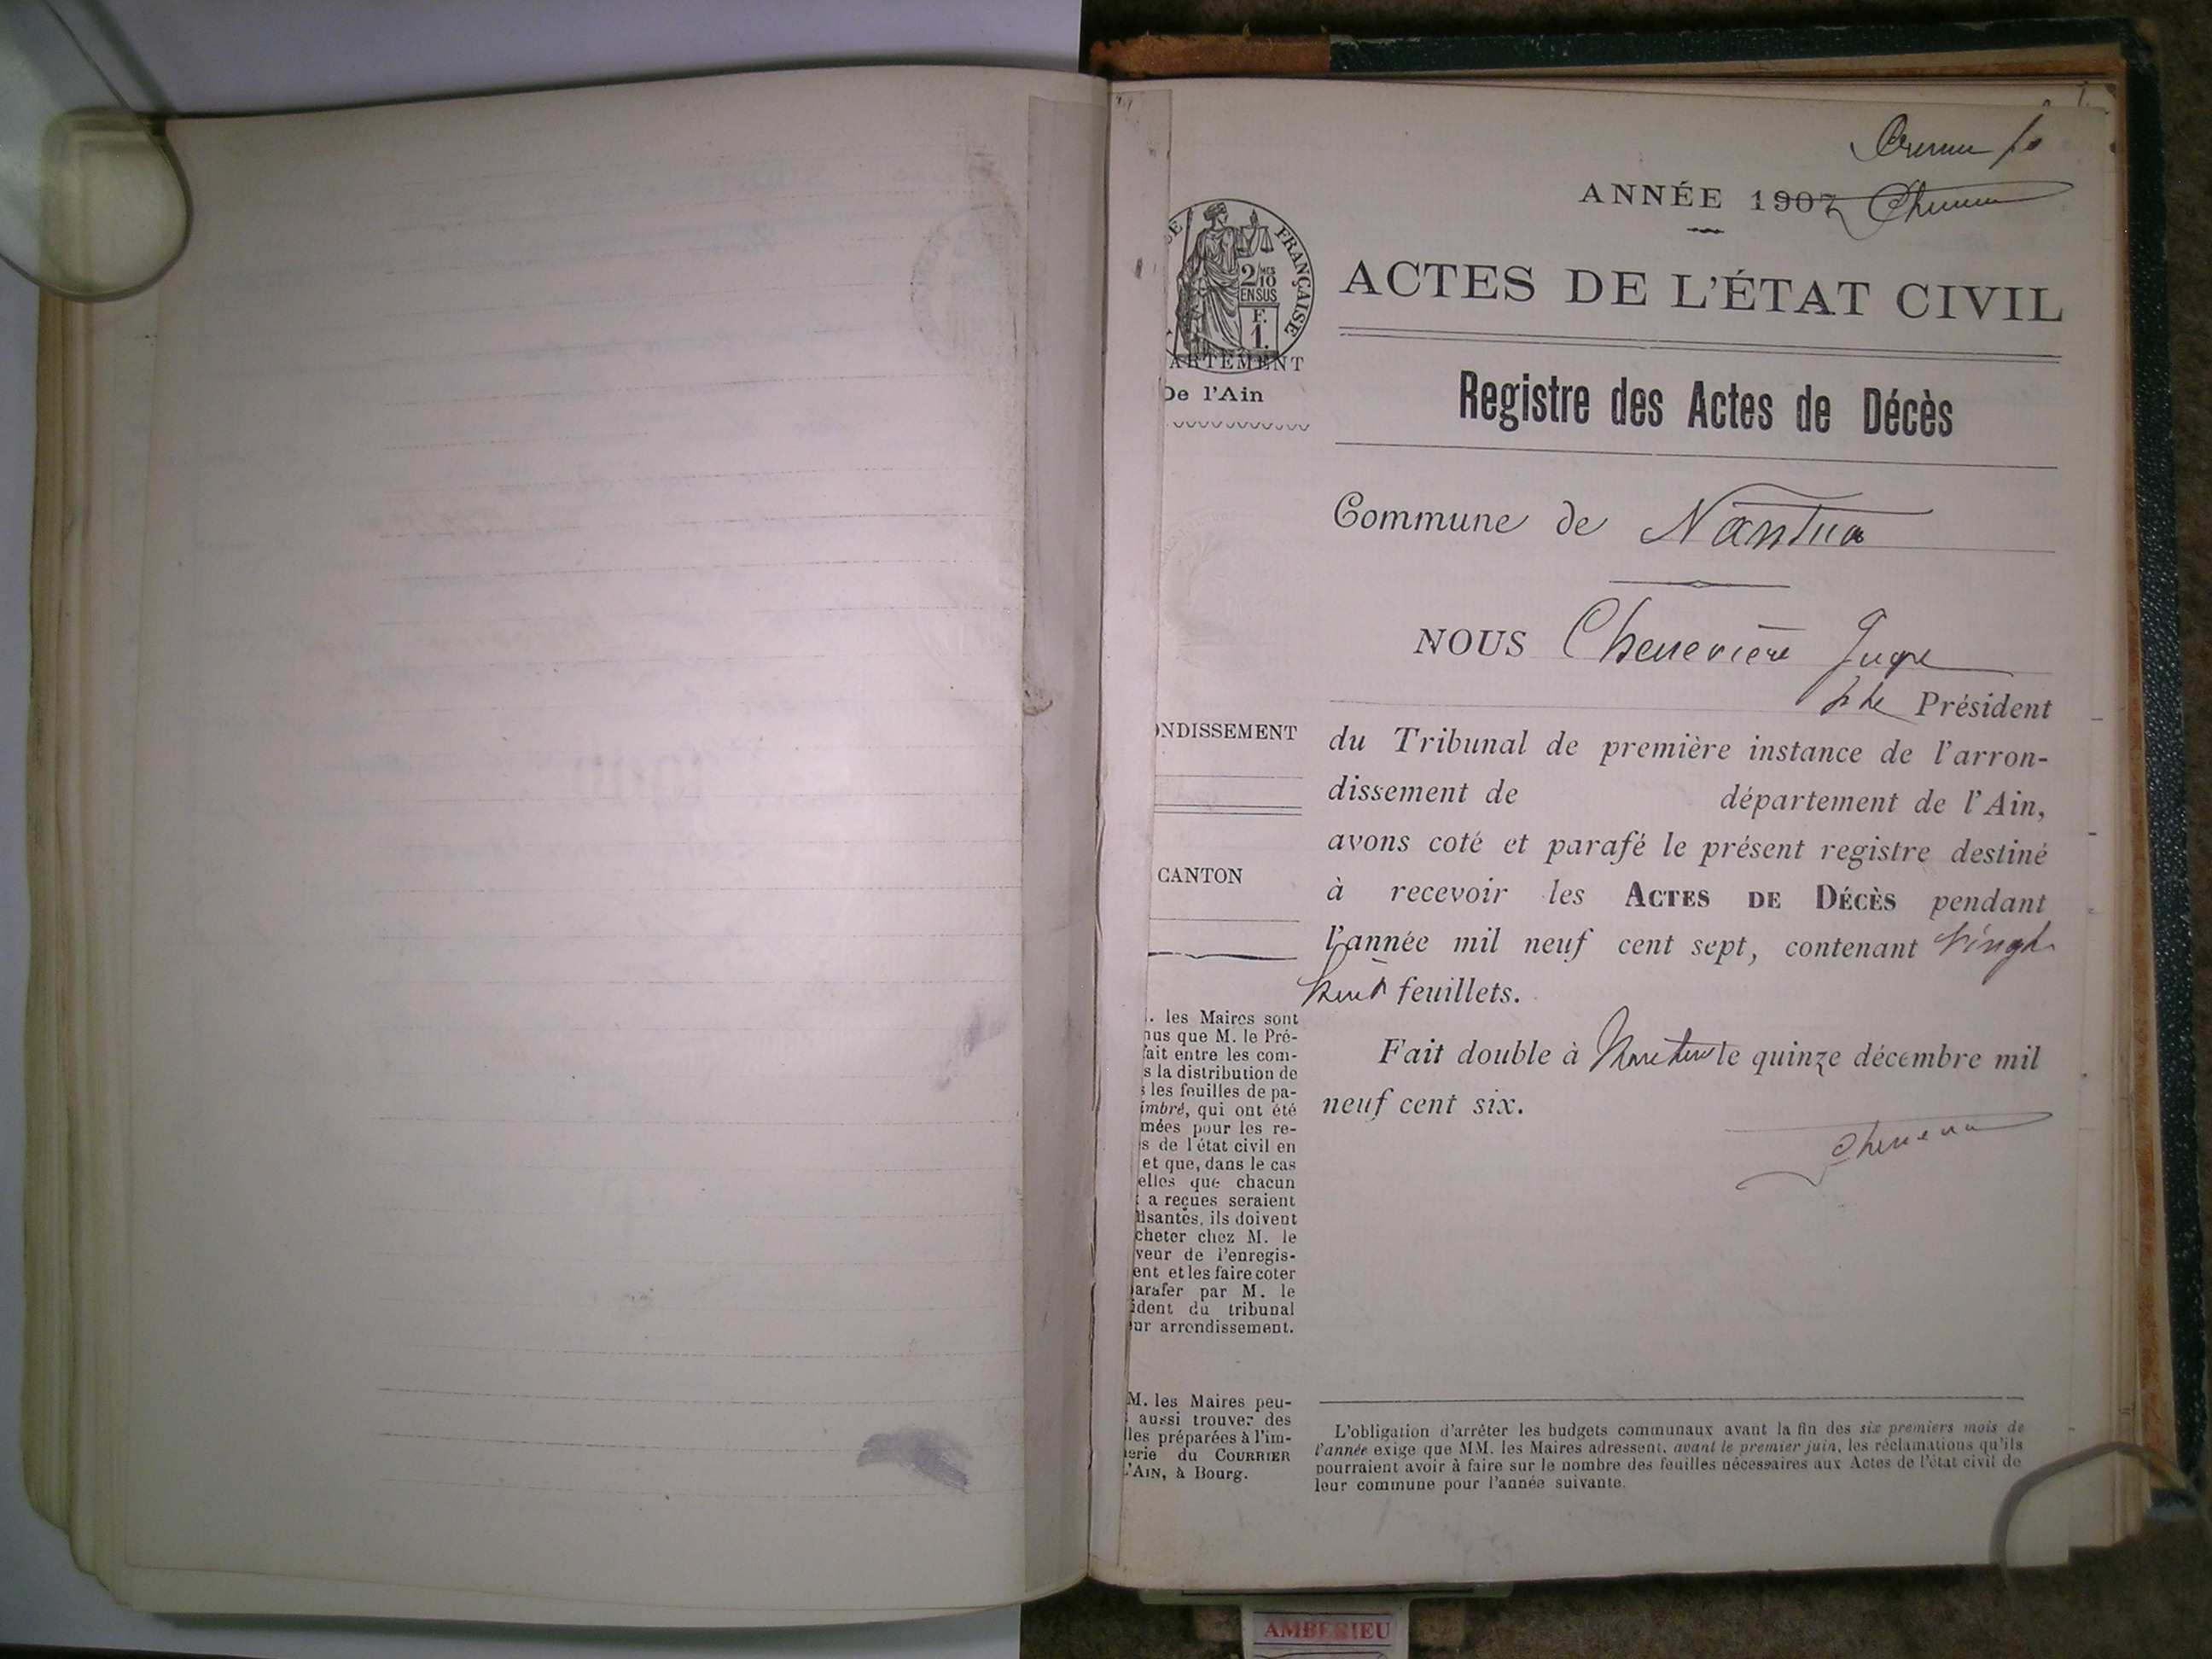 ANNÉE 1907
ACTES DE L'ÉTAT CIVIL
FRANÇAISE
2/MES 10
EN SUS
F.
1.
ARTEMENT
De l'Ain
Registre des Actes de Décès
Commune de Nantua
NOUS Chenevière Juge
Président
ONDISSEMENT
du Tribunal de première instance de l'arron-
dissement de département de l'Ain,
avons coté et parafé le présent registre destiné
CANTON
à recevoir les ACTES DE DÉCÈS pendant
l'année mil neuf cent sept, contenant vingt
huit feuillets.
Fait double à Nantua le quinze décembre mil
neuf cent six.
. les Maires sont
nus que M. le Pré-
fait entre les com-
s la distribution de
s les feuilles de pa-
imbré, qui ont été
mées pour les re-
s de l'état civil en
et que, dans le cas
elles que chacun
t a reçues seraient
fisantes, ils doivent
cheter chez M. le
veur de l'enregis-
ent et les faire coter
parafer par M. le
ident du tribunal
ur arrondissement.
M. les Maires peu-
t aussi trouver des
lles préparées à l'im-
erie du COURRIER
L'AIN, à Bourg.
L'obligation d'arrêter les budgets communaux avant la fin des six premiers mois de
l'année exige que MM. les Maires adressent, avant le premier juin, les réclamations qu'ils
pourraient avoir à faire sur le nombre des feuilles nécessaires aux Actes de l'état civil de
leur commune pour l'année suivante.
AMBERIEU